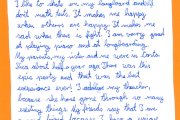 I like to skate on my longboard and I
don't math tests. It makes me happy
when others are happy. It makes me
sad when there is fight. I am very good
at playing music and at longboarding.
My parents, my sister and me were in Costa
Rica about half a year ago. There was this
epic party and that was the best
experience ever. I admire my teacher
because she has gone through so many
exciting things. My friends say that I am
because I have a